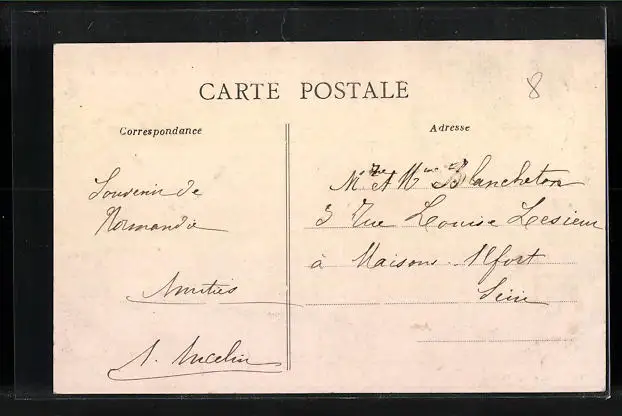 CARTE POSTALE
8
Correspondance
Adresse
Souvenir de
Normandie
Amitiés
A. Ancelin
Mr et Mme Blancheton
3 Rue Louise Lesieur
à Maisons-Alfort
Seine